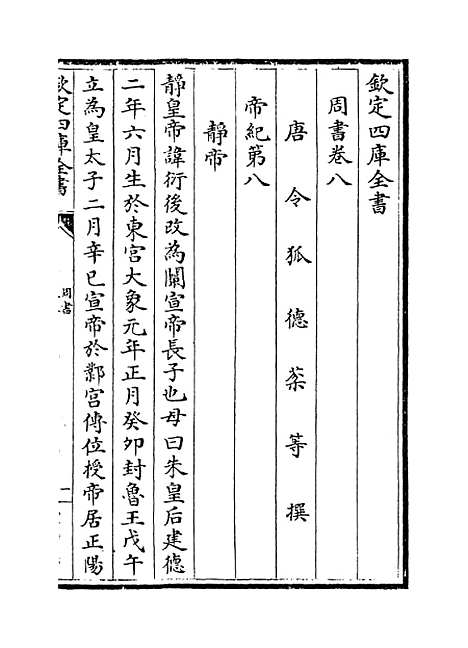 欽定四庫全書
周書卷八
唐令狐德棻等撰
帝紀第八
靜帝
靜皇帝諱衍後改為闡宣帝長子也母曰朱皇后建德
二年六月生於東宮大象元年正月癸卯封魯王戊午
立為皇太子二月辛巳宣帝於鄴宮傳位授帝居正陽
欽定四庫全書
周書